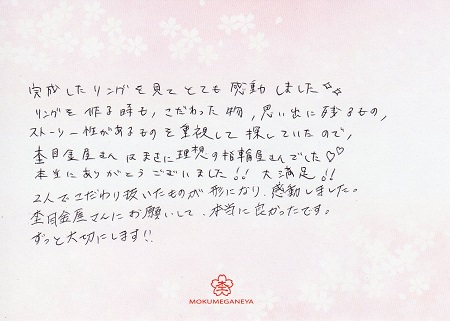 完成したリングを見てとても感動しました✨
リングを作る時も、こだわった物、思い出に残るもの、
ストーリー性があるものを重視して探していたので、
杢目金屋さんはまさに理想の指輪屋さんでした♡♡
本当にありがとうございました!! 大満足!!
2人でこだわり抜いたものが形になり、感動しました。
杢目金屋さんにお願いして、本当に良かったです。
ずっと大切にします!!
杢
MOKUMEGANEYA